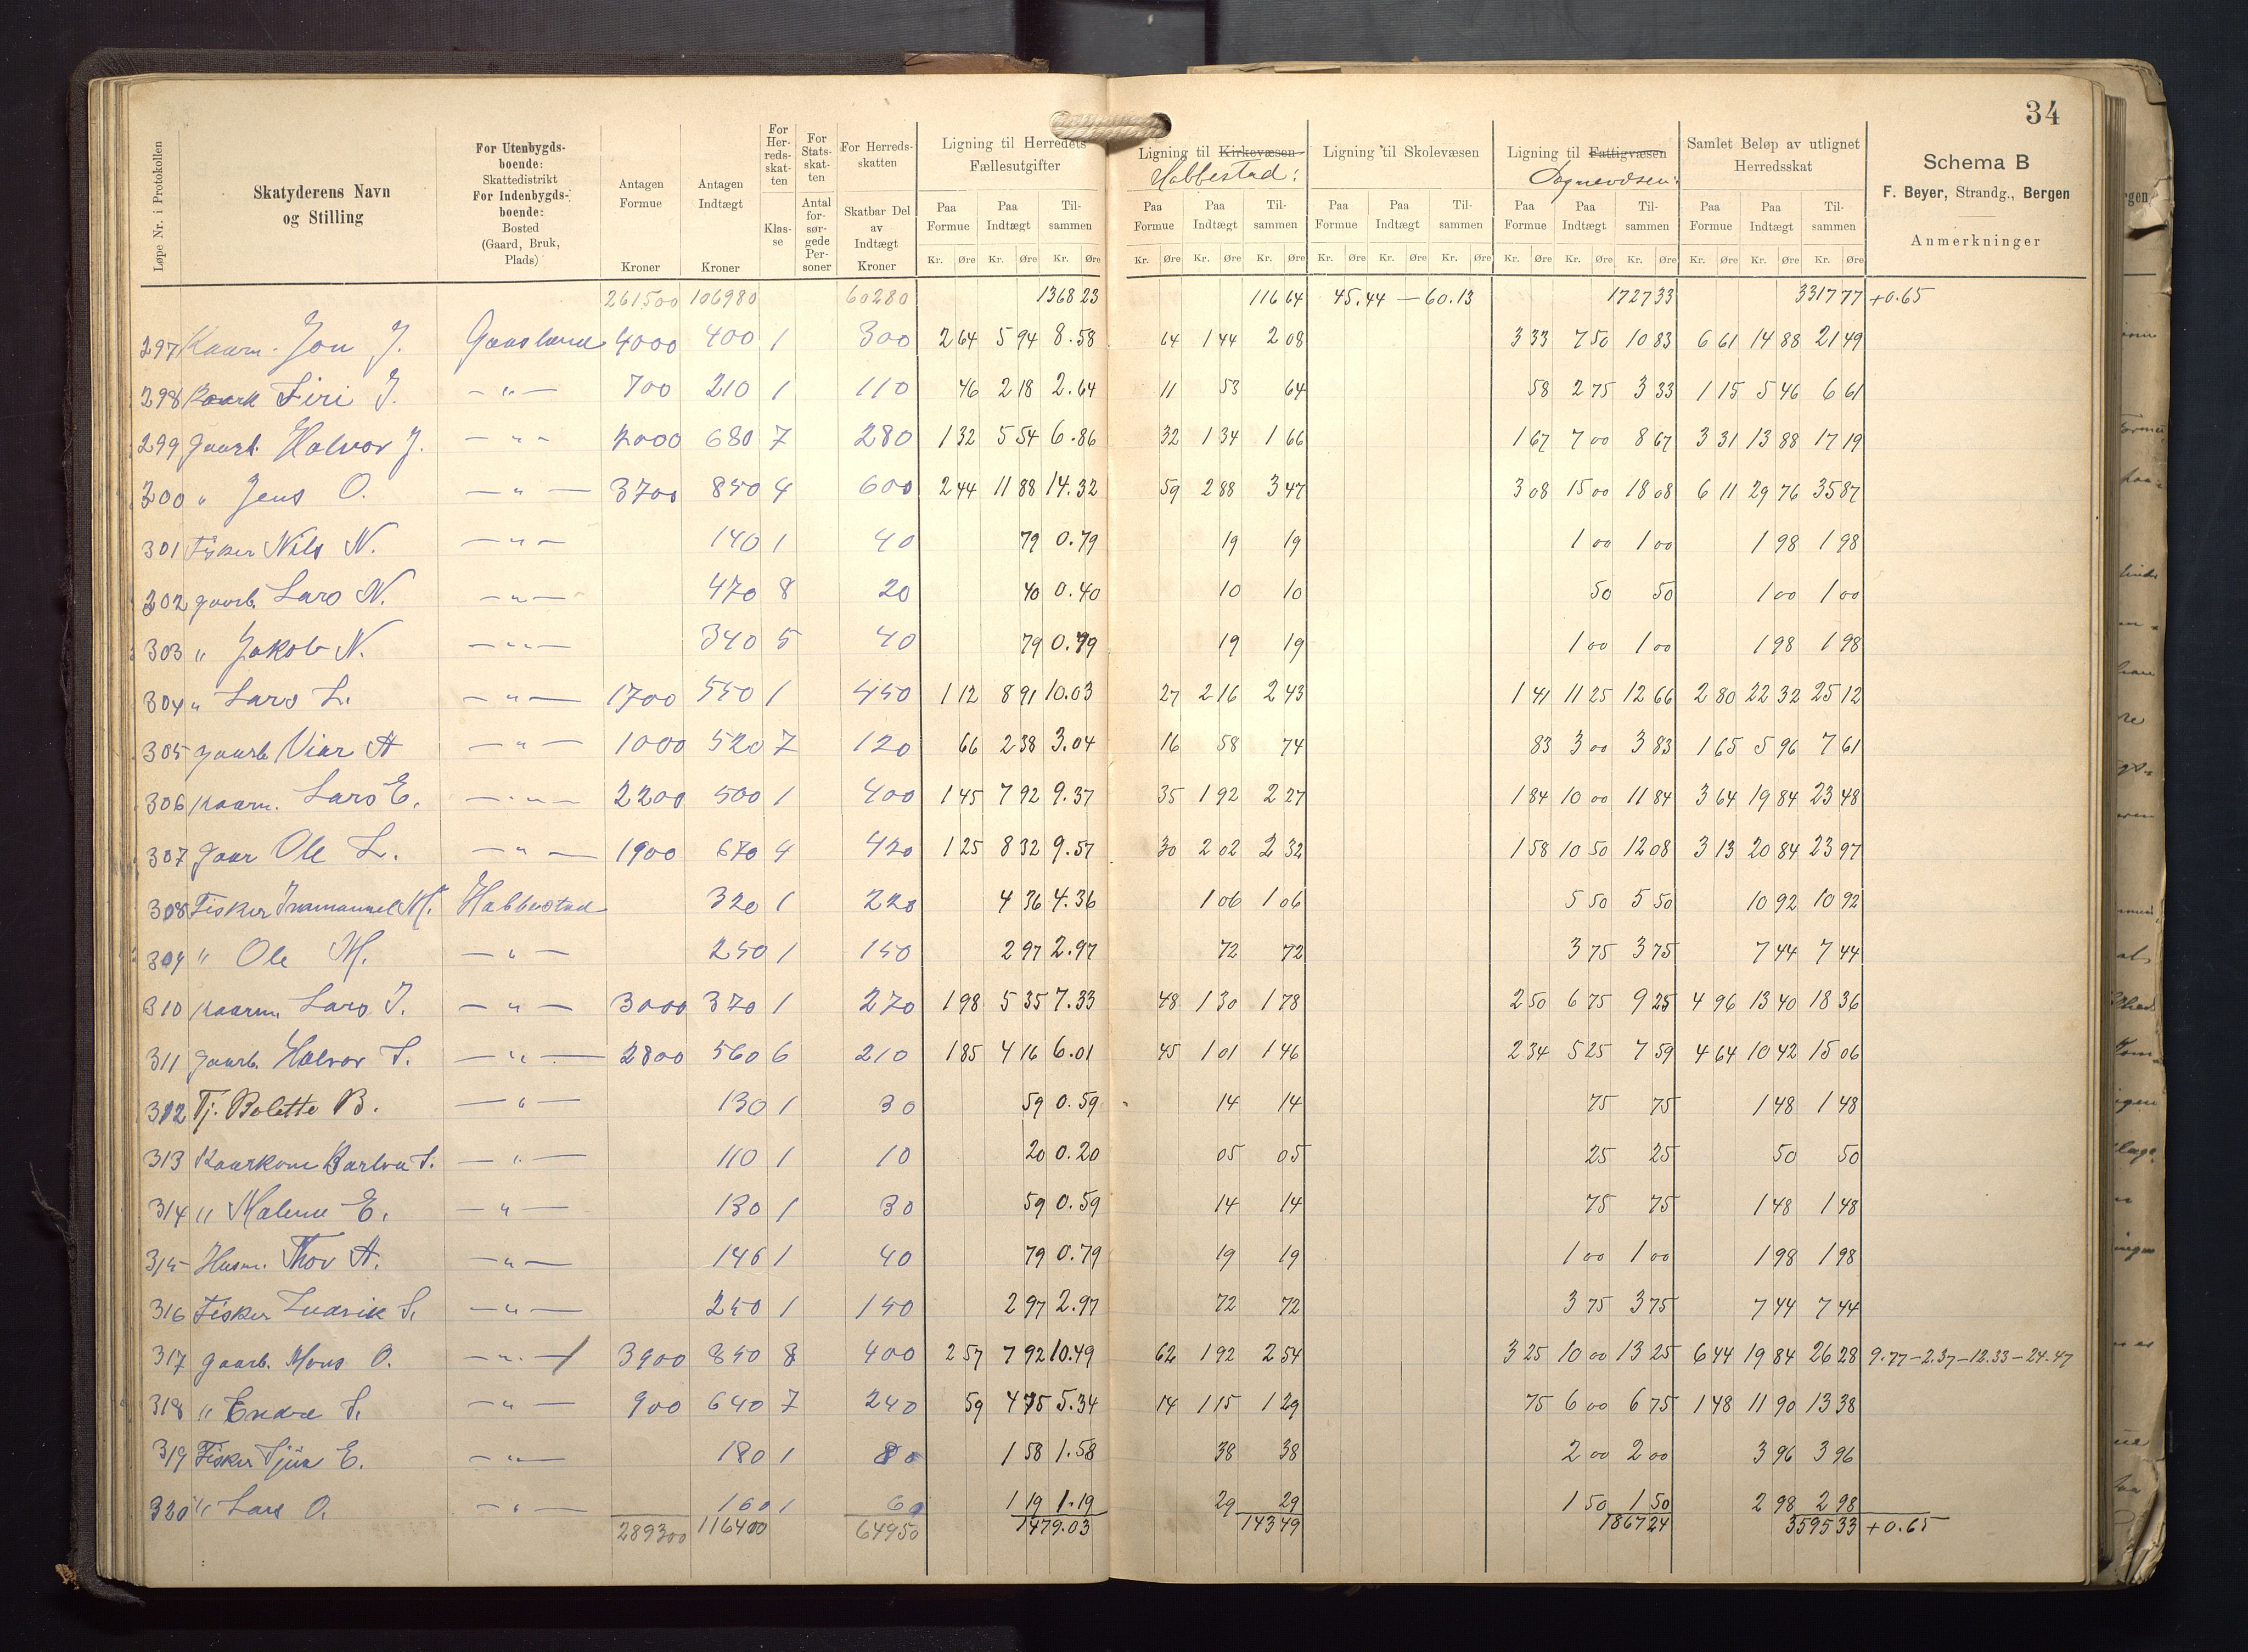 34
Løpe Nr. i Protokollen
Skatyderens Navn og Stilling
For Utenbygdsboende: Skattedistrikt For Indenbygdsboende: Bosted (Gaard, Bruk, Plads)
Antagen Formue Kroner
Antagen Indtægt Kroner
For Herredsskatten Klasse
For Statsskatten Antal forsørgede Personer
For Herredsskatten Skatbar Del av Indtægt Kroner
Ligning til Herredets Fællesutgifter
Paa Formue Paa Indtægt Tilsammen
Kr. Øre Kr. Øre Kr. Øre
Ligning til Kirkevæsen Habbestad:
Paa Formue Paa Indtægt Tilsammen
Kr. Øre Kr. Øre Kr. Øre
Ligning til Skolevæsen
Paa Formue Paa Indtægt Tilsammen
Kr. Øre Kr. Øre Kr. Øre
Ligning til Fattigvæsen Sognevæsen:
Paa Formue Paa Indtægt Tilsammen
Kr. Øre Kr. Øre Kr. Øre
Samlet Beløp av utlignet Herredsskat
Paa Formue Paa Indtægt Tilsammen
Kr. Øre Kr. Øre Kr. Øre
Schema B
F. Beyer, Strandg., Bergen
Anmerkninger
261500 106980 60280 1368 23 116 64 45.44 — 60.13 1727 33 3317 77 +0.65
297 Kaarm. Jon J. Gaasland 4000 400 1 300 2 64 5 94 8.58 64 1 44 2 08 3 33 7 50 10 83 6 61 14 88 21 49
298 Kaark Siri J. — " — 700 210 1 110 46 2 18 2.64 11 53 64 58 2 75 3 33 1 15 5 46 6 61
299 Gaarb. Halvor J. — " — 2000 680 7 280 1 32 5 54 6.86 32 1 34 1 66 1 67 7 00 8 67 3 31 13 88 17 19
300 " Jens O. — " — 3700 850 4 600 2 44 11 88 14.32 59 2 88 3 47 3 08 15 00 18 08 6 11 29 76 35 87
301 Fisker Nils N. — " — 140 1 40 79 0.79 19 19 1 00 1 00 1 98 1 98
302 gaarb. Lars N. — " — 470 8 20 40 0.40 10 10 50 50 1 00 1 00
303 " Jakob N. — " — 340 5 40 79 0.79 19 19 1 00 1 00 1 98 1 98
304 " Lars L. — " — 1700 550 1 450 1 12 8 91 10.03 27 2 16 2 43 1 41 11 25 12 66 2 80 22 32 25 12
305 gaarb Viar A — " — 1000 520 7 120 66 2 38 3.04 16 58 74 83 3 00 3 83 1 65 5 96 7 61
306 kaarm. Lars E. — " — 2200 500 1 400 1 45 7 92 9.37 35 1 92 2 27 1 84 10 00 11 84 3 64 19 84 23 48
307 Gaar Ole L. — " — 1900 670 4 420 1 25 8 32 9.57 30 2 02 2 32 1 58 10 50 12 08 3 13 20 84 23 97
308 Fisker Immanuel M. Habbestad 320 1 220 4 36 4.36 1 06 1 06 5 50 5 50 10 92 10 92
309 " Ole M. — " — 250 1 150 2 97 2.97 72 72 3 75 3 75 7 44 7 44
310 kaarm. Lars J. — " — 3000 370 1 270 1 98 5 35 7.33 48 1 30 1 78 2 50 6 75 9 25 4 96 13 40 18 36
311 gaarb. Halvor S. — " — 2800 560 6 210 1 85 4 16 6.01 45 1 01 1 46 2 34 5 25 7 59 4 64 10 42 15 06
312 Tj. Bolette B. — " — 130 1 30 59 0.59 14 14 75 75 1 48 1 48
313 Kaarkone S. — " — 110 1 10 20 0.20 05 05 25 25 50 50
314 " Malene E. — " — 130 1 30 59 0.59 14 14 75 75 1 48 1 48
315 Husm. Thor A. — " — 146 1 40 79 0.79 19 19 1 00 1 00 1 98 1 98
316 Fisker Ludvik S. — " — 250 1 150 2 97 2.97 72 72 3 75 3 75 7 44 7 44
317 gaarb. Mons O. — " — 3900 850 8 400 2 57 7 92 10.49 62 1 92 2 54 3 25 10 00 13 25 6 44 19 84 26 28 9.77 — 2.37 — 12.33 — 24.47
318 " Endre S. — " — 900 640 7 240 59 4 75 5.34 14 1 15 1 29 75 6 00 6 75 1 48 11 90 13 38
319 Fisker E. — " — 180 1 80 1 58 1.58 38 38 2 00 2 00 3 96 3 96
320 " Lars O. — " — 160 1 60 1 19 1.19 29 29 1 50 1 50 2 98 2 98
289300 116400 64950 1479.03 143 49 1867 24 3595 33 +0.65